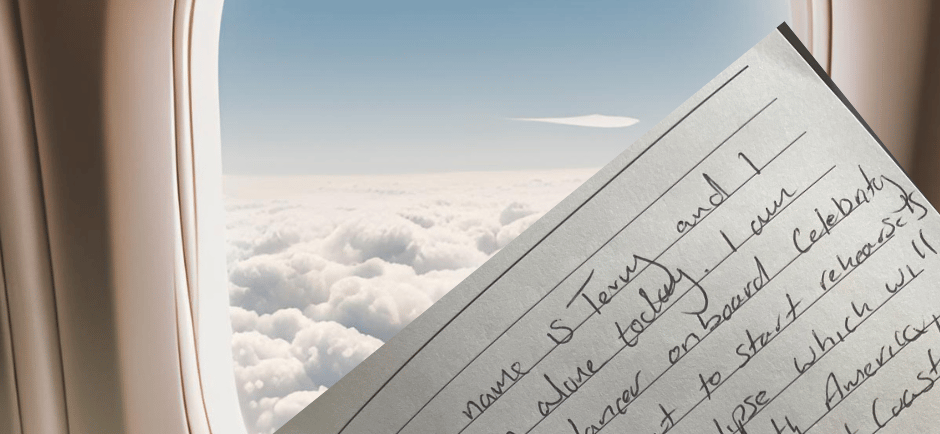 name is Terry and I
alone today. I am
dancer onboard Celebrity
to start rehearsals
which will
America
Coast